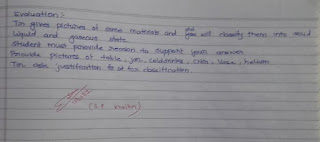 Evaluation:-
Tr. gives pictures of some materials and std will classify them into solid
liquid and gaseous state.
Student must provide reason to support your answer
Provide pictures of table, jar, colddrinks, vase, helium
Tr. asks justification for classification.
(S.P.